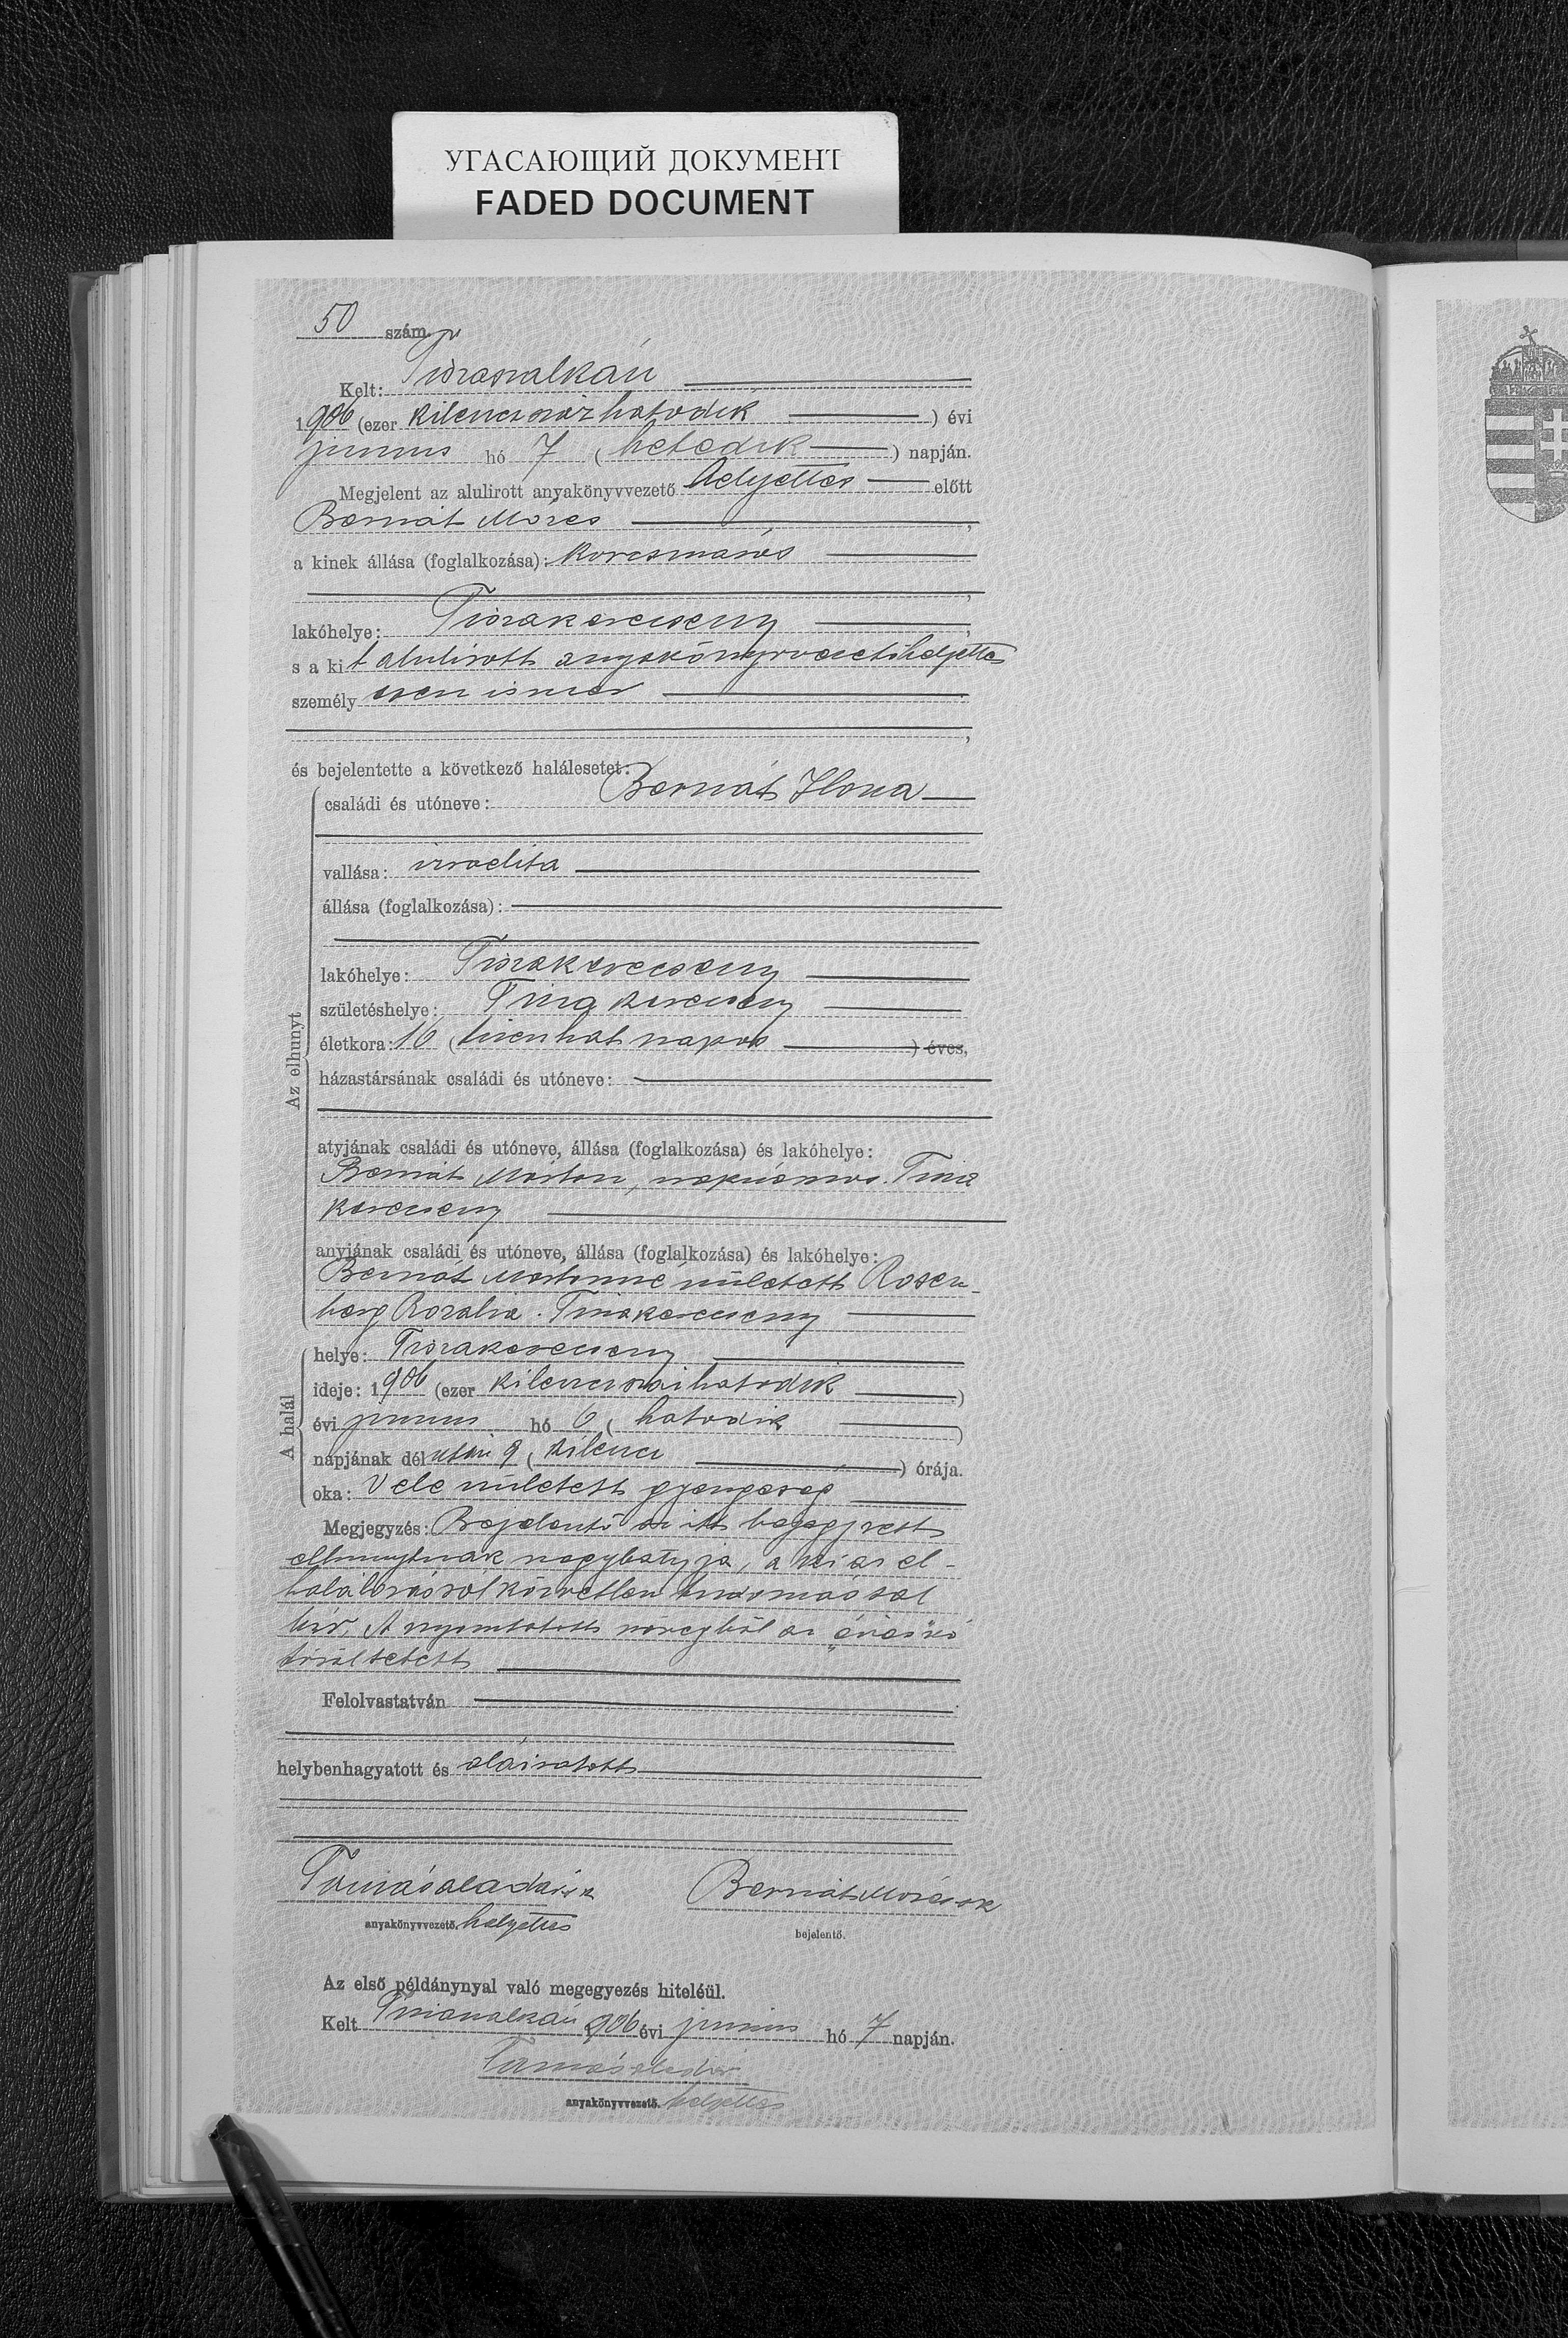 УГАСАЮЩИЙ ДОКУМЕНТ
FADED DOCUMENT
50 szám.
Kelt: Tiszaszalkán
1906 (ezer kilenczszázhatodik ) évi
junius hó 7 ( hetedik ) napján.
Megjelent az alulirott anyakönyvvezető helyettes előtt
Bernát Mózes ,
a kinek állása (foglalkozása): korcsmáros
,
lakóhelye: Tiszakerecseny ,
s a kit alulirott anyakönyvvezetőhelyettes
személyesen ismer
,
és bejelentette a következő halálesetet:
Az elhunyt
családi és utóneve: Bernát Ilona
vallása: izraelita
állása (foglalkozása):
lakóhelye: Tiszakerecseny
születéshelye: Tiszakerecseny
életkora: 16 (tizenhat napos ) éves,
házastársának családi és utóneve:
atyjának családi és utóneve, állása (foglalkozása) és lakóhelye:
Bernát Márton, napszámos. Tisza
kerecseny
anyjának családi és utóneve, állása (foglalkozása) és lakóhelye:
Bernát Mártonné született Rosen-
berg Rozália. Tiszakerecseny
A halál
helye: Tiszakerecseny
ideje: 1906 (ezer kilenczszázhatodik )
évi junius hó 6 ( hatodik )
napjának délután 9 ( kilencz ) órája.
oka: Vele született gyengeség
Megjegyzés: Bejelentő az itt bejegyzett
elhunytnak nagybátyja, a ki az el-
halálozásról közvetlen tudomással
bir. A nyomtatott szövegből az „éves" szó
töröltetett
Felolvastatván .
helybenhagyatott és aláiratott
Tamás Aladár Bernát Mózes
anyakönyvvezető. helyettes
bejelentő.
Az első példánynyal való megegyezés hiteléül.
Kelt Tiszaszalkán 906 évi junius hó 7 napján.
Tamás Aladár
anyakönyvvezető. helyettes